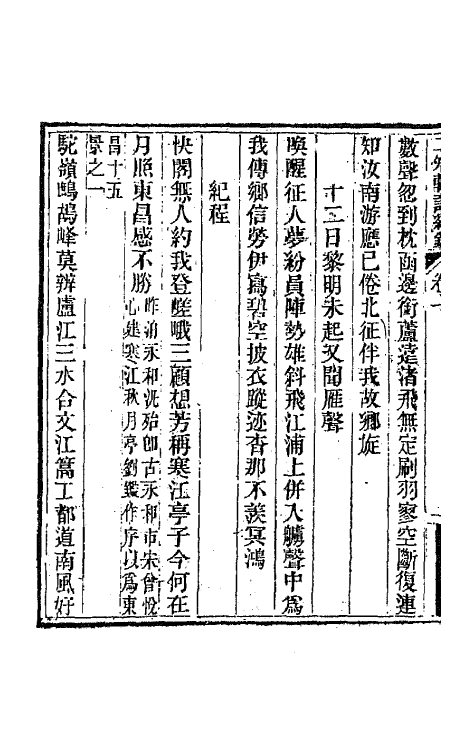 數聲忽到枕函邊銜蘆遠渚飛無定刷羽寥空斷復連
知汝南游應已倦北征伴我故鄉旋
十二日黎明未起又聞雁聲
喚醒征人夢紛員陣勢雄斜飛江浦上併入艣聲中爲
我傳鄉信勞伊寫碧空披衣蹤迹杳那不羨冥鴻
紀程
快閣無人約我登嵯峨三顧想芳稱寒江亭子今何在
月照東昌感不勝
昨泊永和洸殆卽古永和市宋曾悅
心建寒江秋月亭劉鑑作序以爲東
昌十五
景之一
駝嶺鷓鴣峰莫辨廬江三水合文江篙工都道南風好